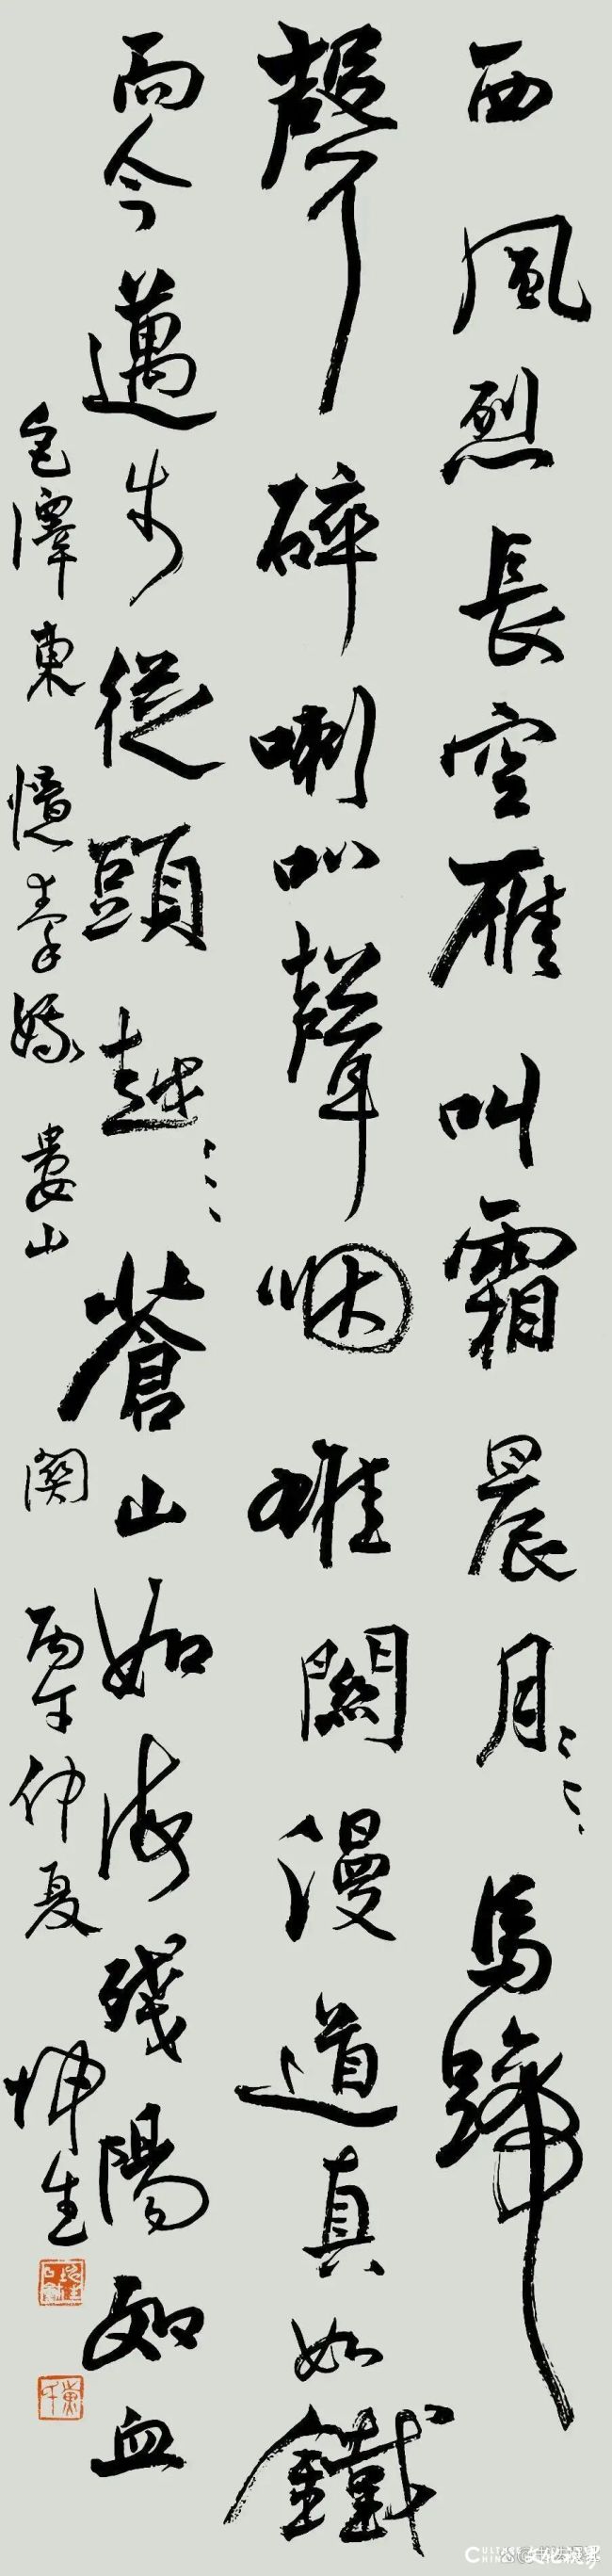 西風烈長空雁叫霜晨月〻〻〻馬蹄
聲碎喇叭聲咽雄關漫道真如鐵
而今邁步從頭越〻〻〻蒼山如海殘陽如血
毛澤東憶秦娥婁山關丙午仲夏坤生
文化視界